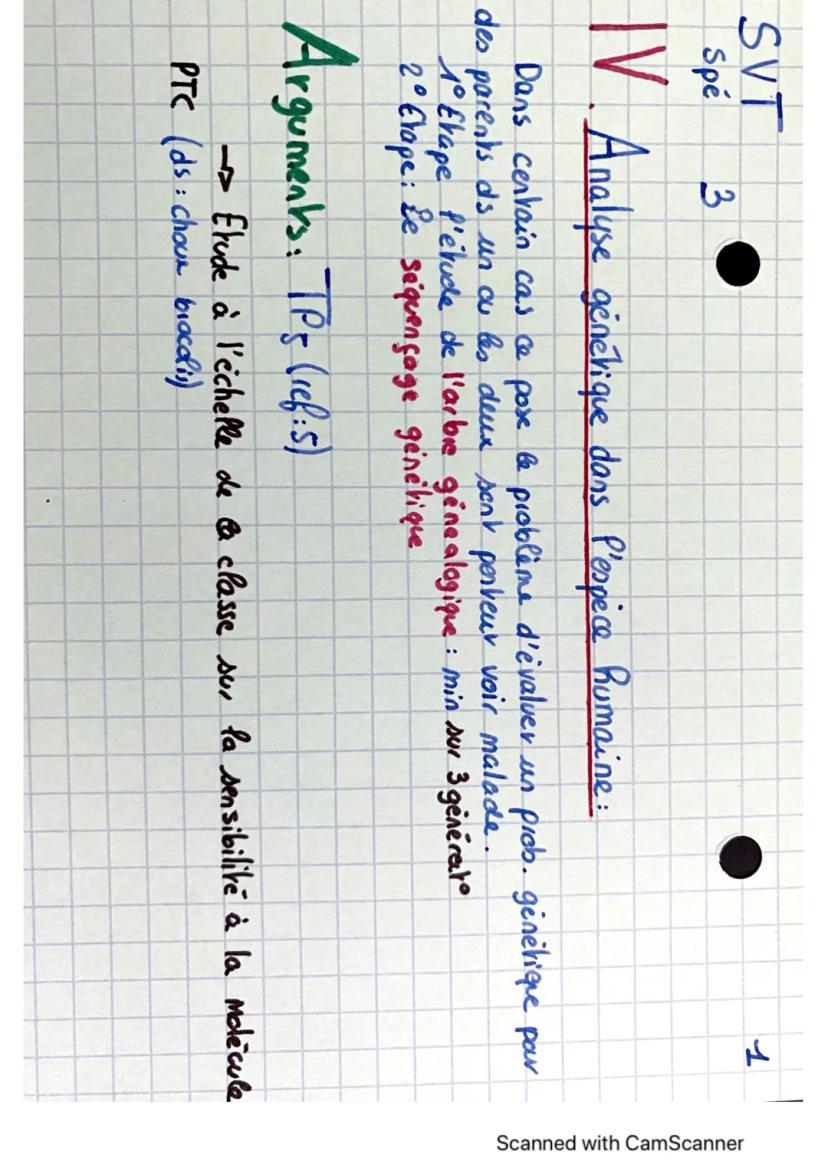 SVT
Spé 3
1
IV. Analyse génétique dans l'espèce humaine :
Dans certain cas ce pose le problème d'évaluer un prob. génétique pour
des parents ds un ou les deux sont porteur voir malade.
1° Etape l'étude de l'arbre généalogique : min sur 3 générat°
2° Etape : Le séquençage génétique
Arguments : TP5 (ref : 5)
→ Etude à l'échelle de la classe sur la sensibilité à la molécule
PTC (ds : choux brocolis)
Scanned with CamScanner